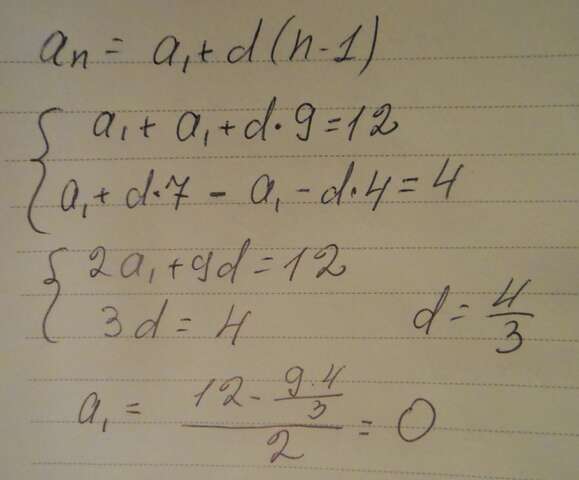 aₙ = a₁ + d(n-1)
a₁ + a₁ + d·9 = 12
a₁ + d·7 - a₁ - d·4 = 4
2a₁ + 9d = 12
3d = 4 d = 4/3
a₁ = (12 - 9·4/3)/2 = 0